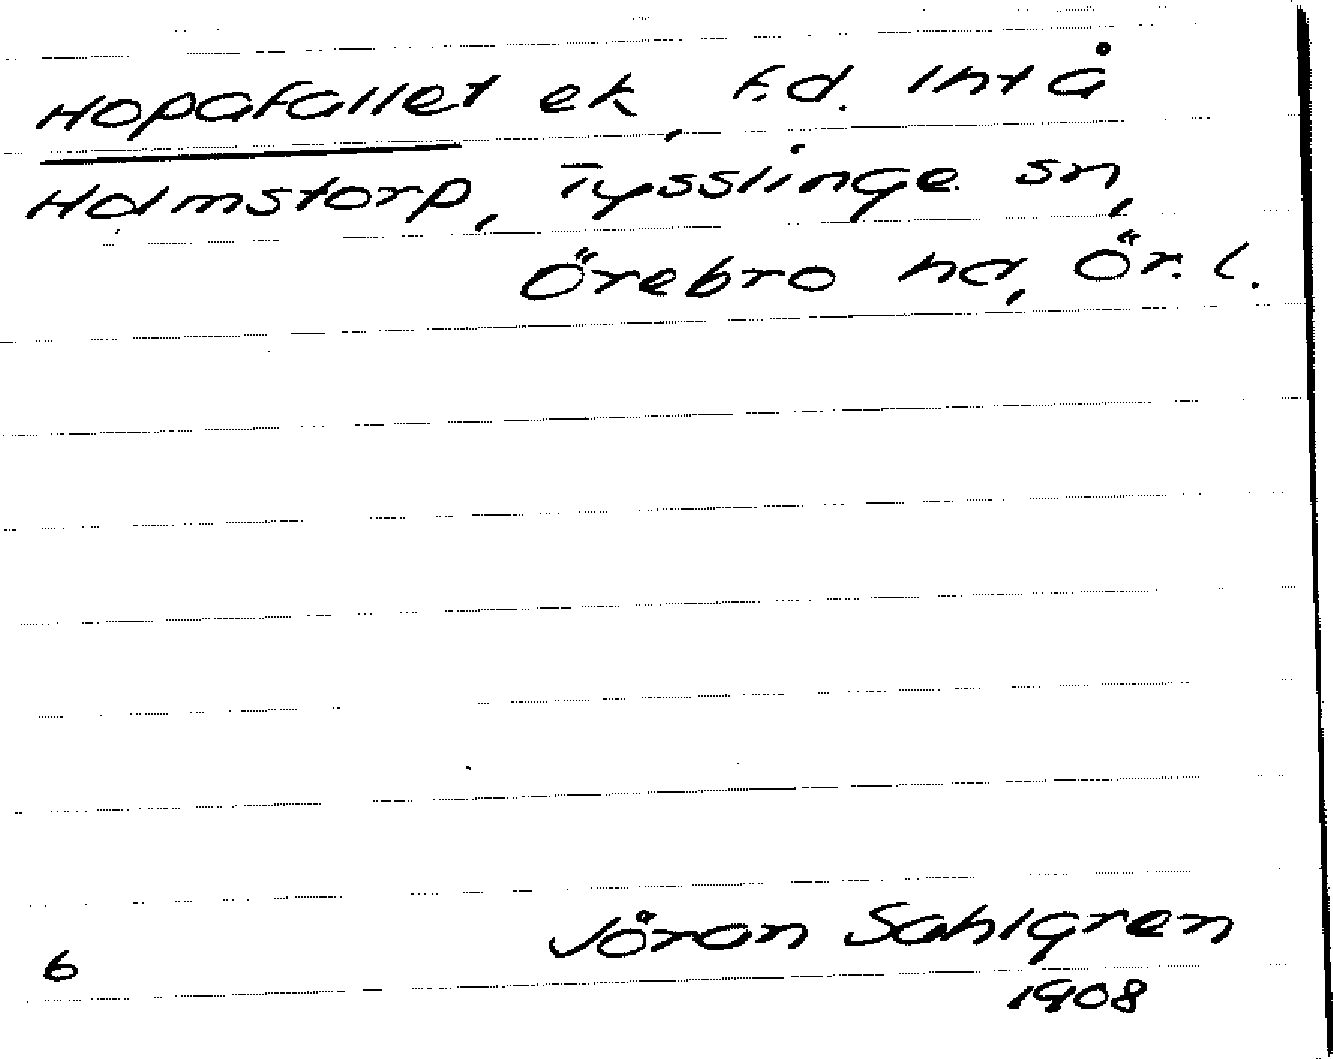 Hopafallet ek, f.d. Int å
Holmstorp, Tysslinge sn,
Örebro hd, Ör. l.
Jöran Sahlgren
6
1908